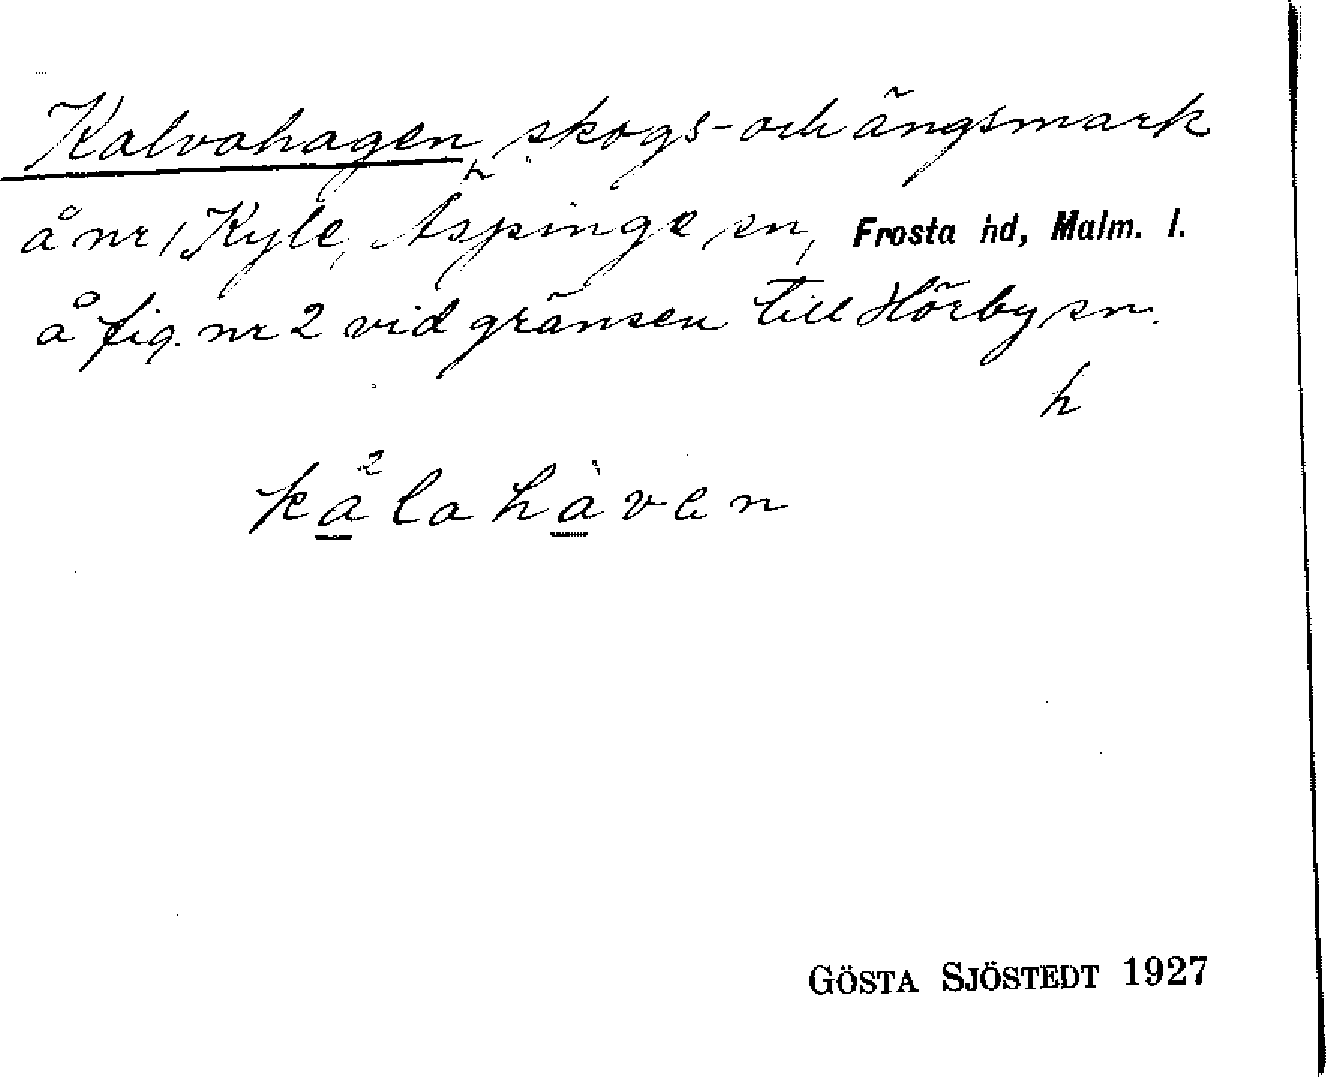 Kalvahagen, skogs- och ängsmark
h
å nr 1 Kyle, Äspinge sn, Frosta hd, Malm. l.
å fig. nr 2 vid gränsen till Hörby sn.
h
kå²lahàven
GÖSTA SJÖSTEDT 1927